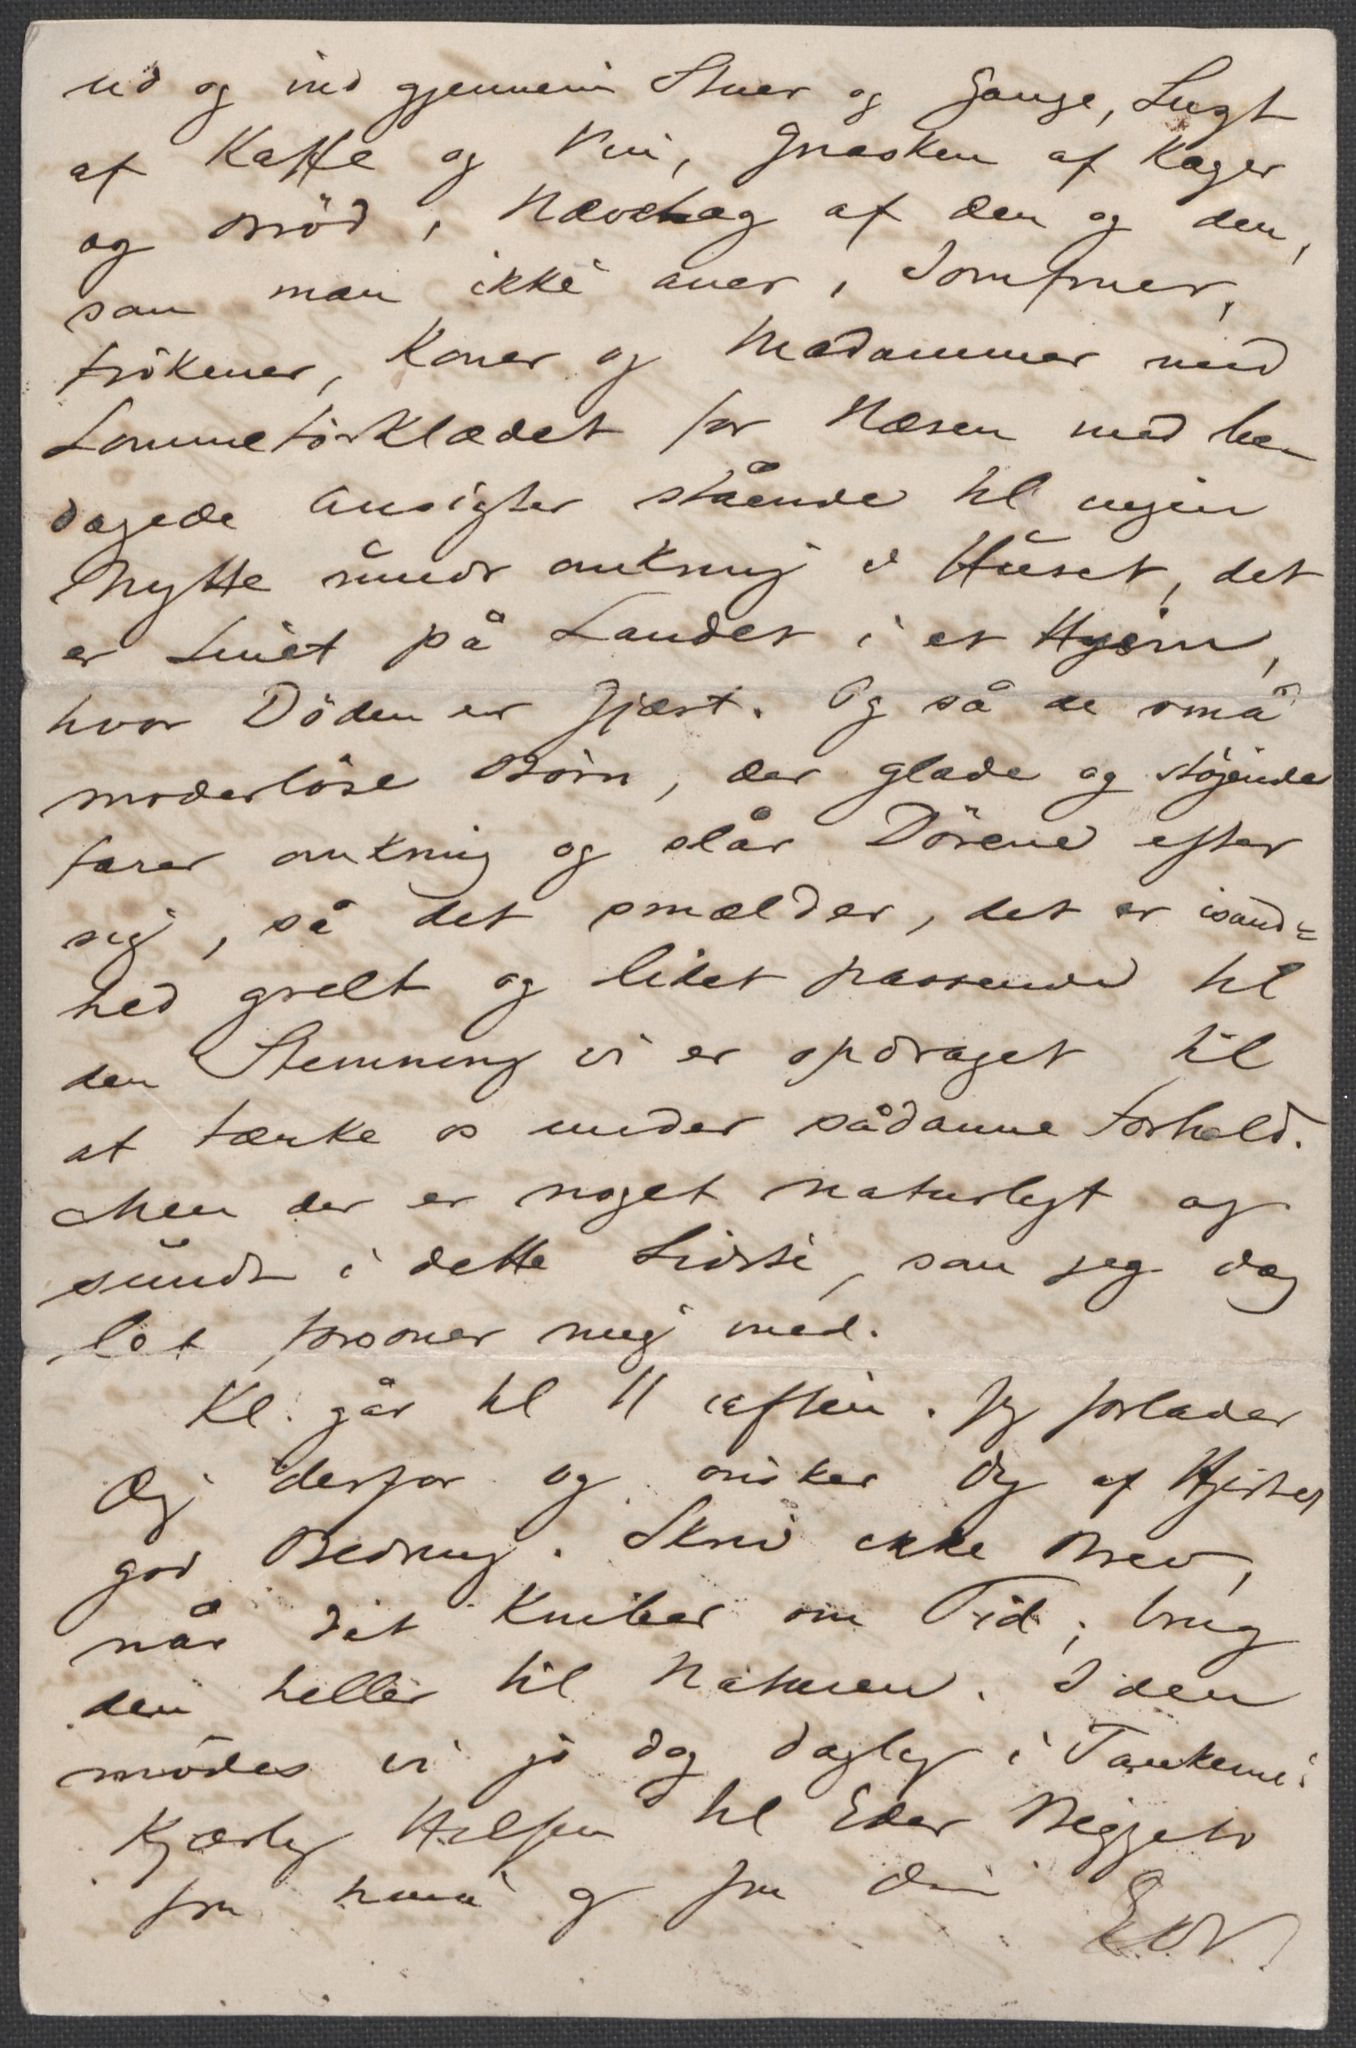 ud og ind gjennem Stuer og Gange, Lugt
af Kaffe og Vin, Gnasken af Kager
og Brød, Nærvær af den og den,
som man ikke aner, Jomfruer,
Frøkener, Koner og Madammer med
Lommetørklædet for Næsen med be-
dagede Ansigter stående til ingen
Nytte rundt omkring i Huset, det
er Livet på Landet i et Hjem,
hvor Döden er Gjæst. Og så de små
moderløse Børn, der glade og støjende
farer omkring og slår Dörene efter
sig, så det smælder, det er isand=
hed grelt og lidet passende til
den Stemning vi er opdraget til
at tænke os under sådanne Forhold.
Men der er noget naturligt og
sundt i dette Sidste, som jeg dog
let forsoner mig med.
Kl. går til 11 iaften. Jeg forlader
Dig derfor og önsker Dig af Hjertet
god Bedring. Skriv ikke Brev,
når det kniber om Tid; brug
den heller til Naturen. I den
mödes vi jo dog daglig i Tankerne.
Kjærlig Hilsen til Eder Begge to
fra og fra Din